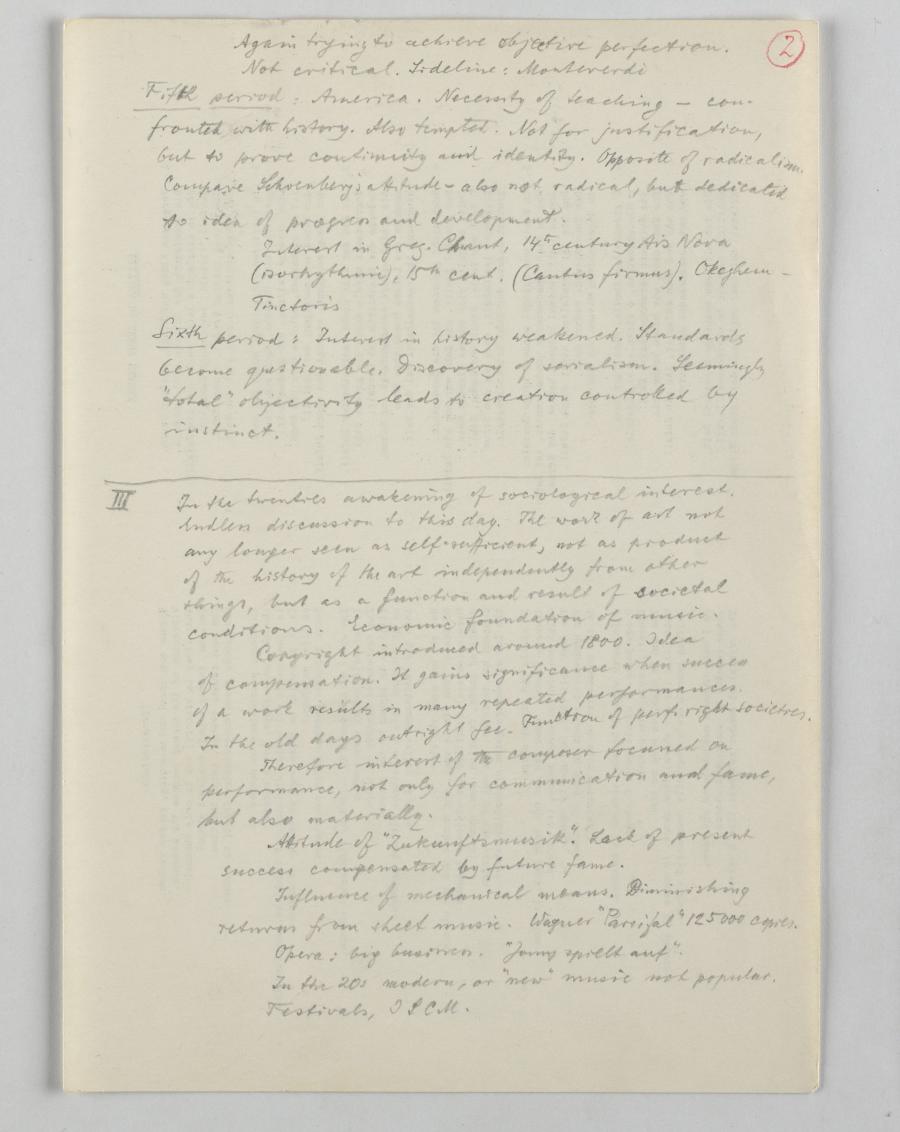 2
Again trying to achieve objective perfection.
Not critical. Sideline: Monteverdi
Fifth period: America. Necessity of teaching – con-
fronted with history. Also tempted. Not for justification,
but to prove continuity and identity. Opposite of radicalism.
Compare Schoenberg's attitude – also not radical, but dedicated
to idea of progress and development.
Interest in Greg. Chant, 14th century Ars Nova
(isorhythmic), 15th cent. (Cantus firmus). Okeghem –
Tinctoris
Sixth period: Interest in history weakened. Standards
become questionable. Discovery of serialism. Seemingly
"total" objectivity leads to creation controlled by
instinct.
III In the twenties awakening of sociological interest.
Endless discussion to this day. The work of art not
any longer seen as self-sufficient, not as product
of the history of the art independently from other
things, but as a function and result of societal
conditions. Economic foundation of music.
Copyright introduced around 1800. Idea
of compensation. It gains significance when success
of a work results in many repeated performances.
In the old days outright fee. Function of perf. right societies.
Therefore interest of the composer focused on
performance, not only for communication and fame,
but also materially.
Attitude of "Zukunftsmusik". Lack of present
success compensated by future fame.
Influence of mechanical means. Diminishing
returns from sheet music. Wagner "Parsifal" 125000 copies.
Opera: big business. "Jonny spielt auf".
In the 20s modern, or "new" music not popular.
Festivals, ISCM.